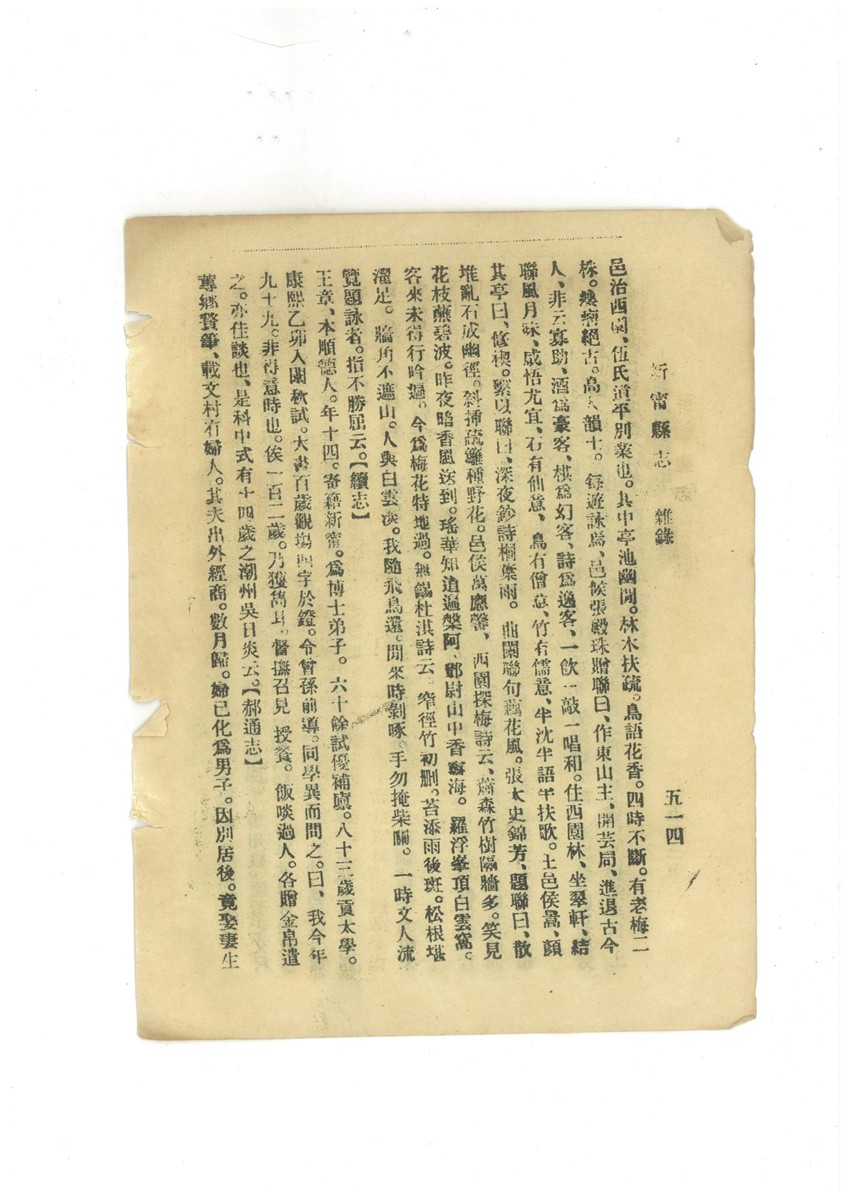 新甯縣志 雜錄 五一四
邑治西園、伍氏道平別業也。其中亭池幽閒。林木扶疏。鳥語花香。四時不斷。有老梅二
株。瘦癯絕古。高人韻士。每遊詠焉、邑侯張殿珠贈聯曰、作東山主、開芸局、進退古今
人、非云寡助、酒爲豪客、棋爲幻客、詩爲逸客、一飲一敲一唱和。住西園林、坐翠軒、結
聯風月味、感悟尤宜、石有仙意、鳥有僧意、竹有儒意、半沈半語半扶歌。王邑侯暠、顏
其亭曰、修禊。繫以聯曰、深夜鈔詩桐葉雨。曲闌聯句藕花風。張太史錦芳、題聯曰、散
堆亂石成幽徑。斜揷疏籬種野花。邑侯萬應馨、西園探梅詩云、蕭森竹樹隔牆多。笑見
花枝蘸碧波。昨夜暗香風送到。瑤華知道遍槃阿、鄧尉山中香雪海。羅浮峯頂白雲窩。
客來未得行吟遍。今爲梅花特地過。無錫杜淇詩云、窄徑竹初刪。苔添雨後斑。松根堪
濯足。牆角不遮山。人與白雲淡。我隨飛鳥還。閒來時剝啄。手勿掩柴關。一時文人流
覽題詠者。指不勝屈云。【續志】
王章、本順德人。年十四。寄籍新甯。爲博士弟子。六十餘試優補廩。八十三歲貢太學。
康熙乙卯入闈秋試。大書百歲觀塲四字於鐙。令曾孫前導。同學異而問之。曰、我今年
九十九。非得意時也。俟一百二歲。乃獲雋耳。督撫召見 授餐。飯啖過人。各贈金帛遣
之。亦佳談也、是科中式有十四歲之潮州吳日炎云。【郝通志】
蓴鄉贅筆、載文村有婦人。其夫出外經商。數月歸。婦已化爲男子。因別居後。竟娶妻生